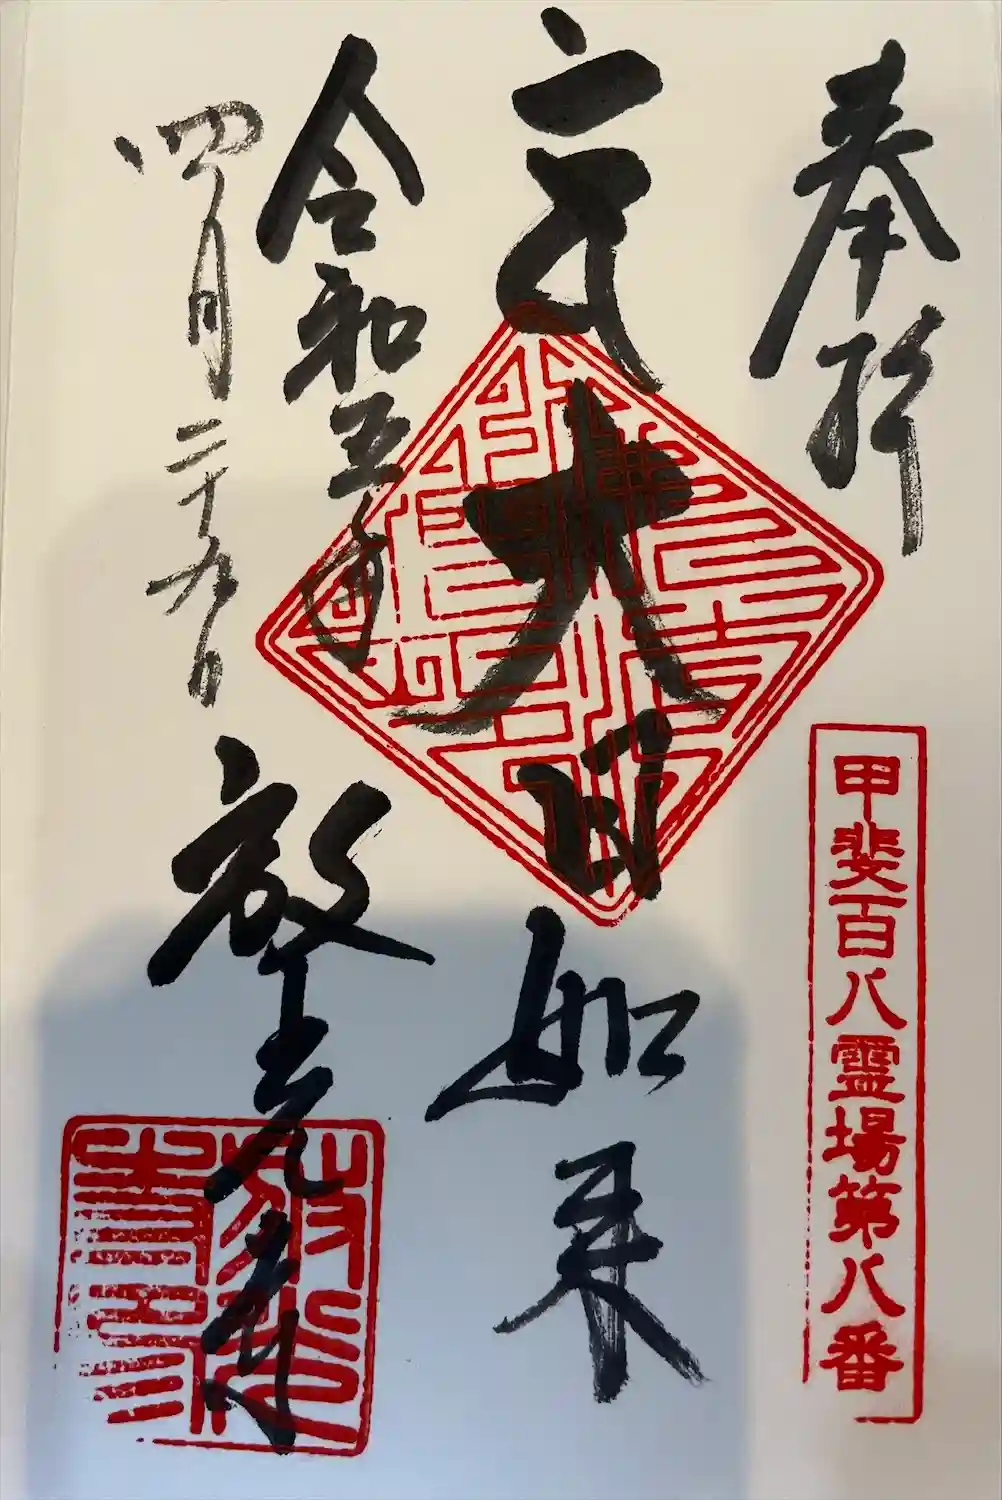 奉拝
甲斐百八霊場第八番
大日如来
令和五年
四月二十九日
放光寺